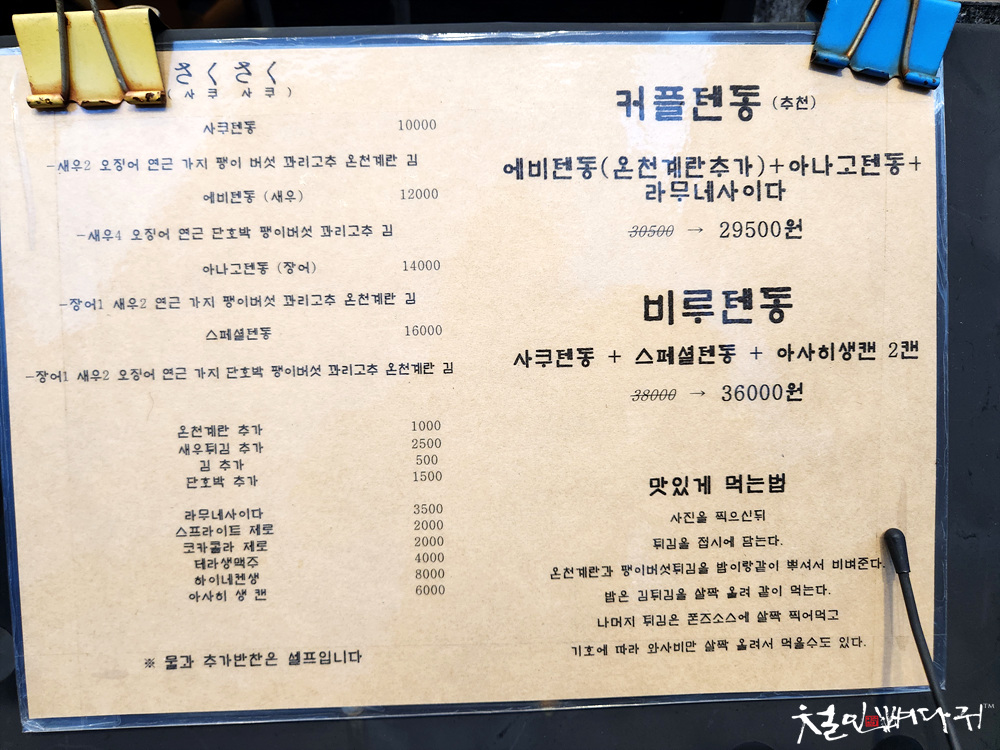 さくさく
(사쿠 사쿠)
사쿠텐동 10000
-새우2 오징어 연근 가지 팽이 버섯 꽈리고추 온천계란 김
에비텐동 (새우) 12000
-새우4 오징어 연근 단호박 팽이버섯 꽈리고추 김
아나고텐동 (장어) 14000
-장어1 새우2 연근 가지 팽이버섯 꽈리고추 온천계란 김
스페셜텐동 16000
-장어1 새우2 오징어 연근 가지 단호박 팽이버섯 꽈리고추 온천계란 김
온천계란 추가 1000
새우튀김 추가 2500
김 추가 500
단호박 추가 1500
라무네사이다 3500
스프라이트 제로 2000
코카콜라 제로 2000
테라생맥주 4000
하이네켄생 8000
아사히 생 캔 6000
※ 물과 추가반찬은 셀프입니다
커플텐동 (추천)
에비텐동(온천계란추가)+아나고텐동+
라무네사이다
30500 → 29500원
비루텐동
사쿠텐동 + 스페셜텐동 + 아사히생캔 2캔
38000 → 36000원
맛있게 먹는법
사진을 찍으신뒤
튀김을 접시에 담는다.
온천계란과 팽이버섯튀김을 밥이랑같이 뿌셔서 비벼준다.
밥은 김튀김을 살짝 올려 같이 먹는다.
나머지 튀김은 폰즈소스에 살짝 찍어먹고
기호에 따라 와사비만 살짝 올려서 먹을수도 있다.
철인뼈다귀™